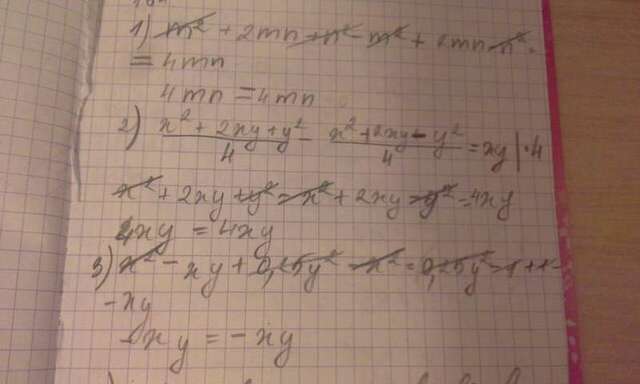 1) m² + 2mn + n² - m² + 2mn - n² =
= 4mn
4mn = 4mn
2) x² + 2xy + y² / 4 - x² + 2xy - y² / 4 = xy | ·4
x² + 2xy + y² - x² + 2xy - y² = 4xy
4xy = 4xy
3) x² - xy + 0,25y² - x² - 0,25y²
- xy
- xy = - xy